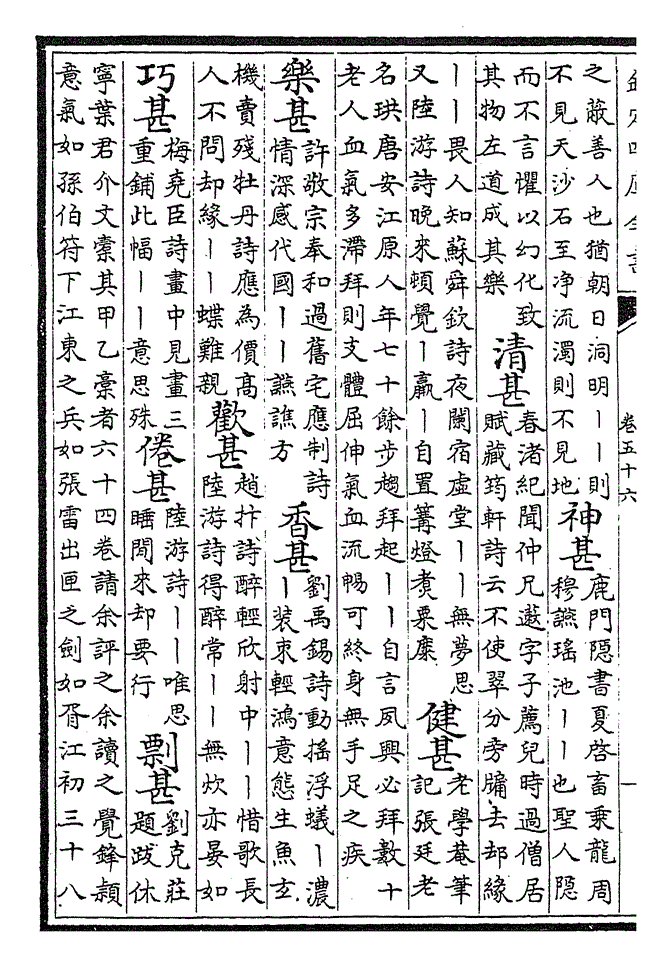 卷五十六
之蔽善人也猶朝日洞明丨丨則
不見天沙石至净流濁則不見地
神甚
鹿門隱書夏啓畜乘龍周
穆讌瑶池丨丨也聖人隱
而不言懼以幻化致
其物左道成其樂
清甚
春渚紀聞仲兄遯字子薦兒時過僧居
賦藏筠軒詩云不使翠分旁牖去却緣
丨丨畏人知蘇舜欽詩夜闌宿虚堂丨丨無夢思
又陸游詩晚來頓覺丨羸丨自置篝燈煑粟糜
健甚
老學菴筆
記張廷老
名珙唐安江原人年七十餘步趨拜起丨丨自言夙興必拜數十
老人血氣多滯拜則支體屈伸氣血流暢可終身無手足之疾
樂甚
許敬宗奉和過舊宅應制詩
情深感代國丨丨讌譙方
香甚
劉禹錫詩動搖浮蟻丨濃
丨装束輕鴻意態生魚玄
機賣殘牡丹詩應為價髙
人不問却緣丨丨蝶難親
歡甚
趙抃詩醉輕欣射中丨丨惜歌長
陸游詩得醉常丨丨無炊亦晏如
巧甚
梅堯臣詩畫中見畫三
重鋪此幅丨丨意思殊
倦甚
陸游詩丨丨唯思
睡閒來却要行
剽甚
劉克莊
題跋休
寧葉君介文槖其甲乙藁者六十四卷請余評之余讀之覺鋒頴
意氣如孫伯符下江東之兵如張雷出匣之劍如胥江初三十八